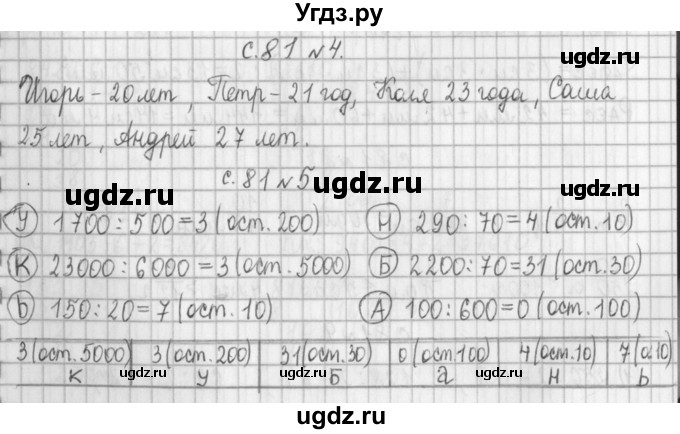 Угдз.ру
с.81 №4.
ugdz.ru
Игорь - 20 лет, Петр - 21 год, Коля 23 года, Саша
ugdz.ru ugdz.ru
25 лет, Андрей 27 лет.
с.81 №5
ugdz.ru ugdz.ru
У 1700:500=3 (ост. 200) Н 290:70=4 (ост. 10)
ugdz.ru ugdz.ru
К 23000:6000=3 (ост. 5000) Б 2200:70=31 (ост. 30)
Ь 150:20=7 (ост. 10) А 100:600=0 (ост. 100)
ugdz.ru
3 (ост. 5000) 3 (ост. 200) 31 (ост. 30) 0 (ост. 100) 4 (ост. 10) 7 (о.10)
к у Б а н ь
ugdz.ru ugdz.ru
ugdz.ru